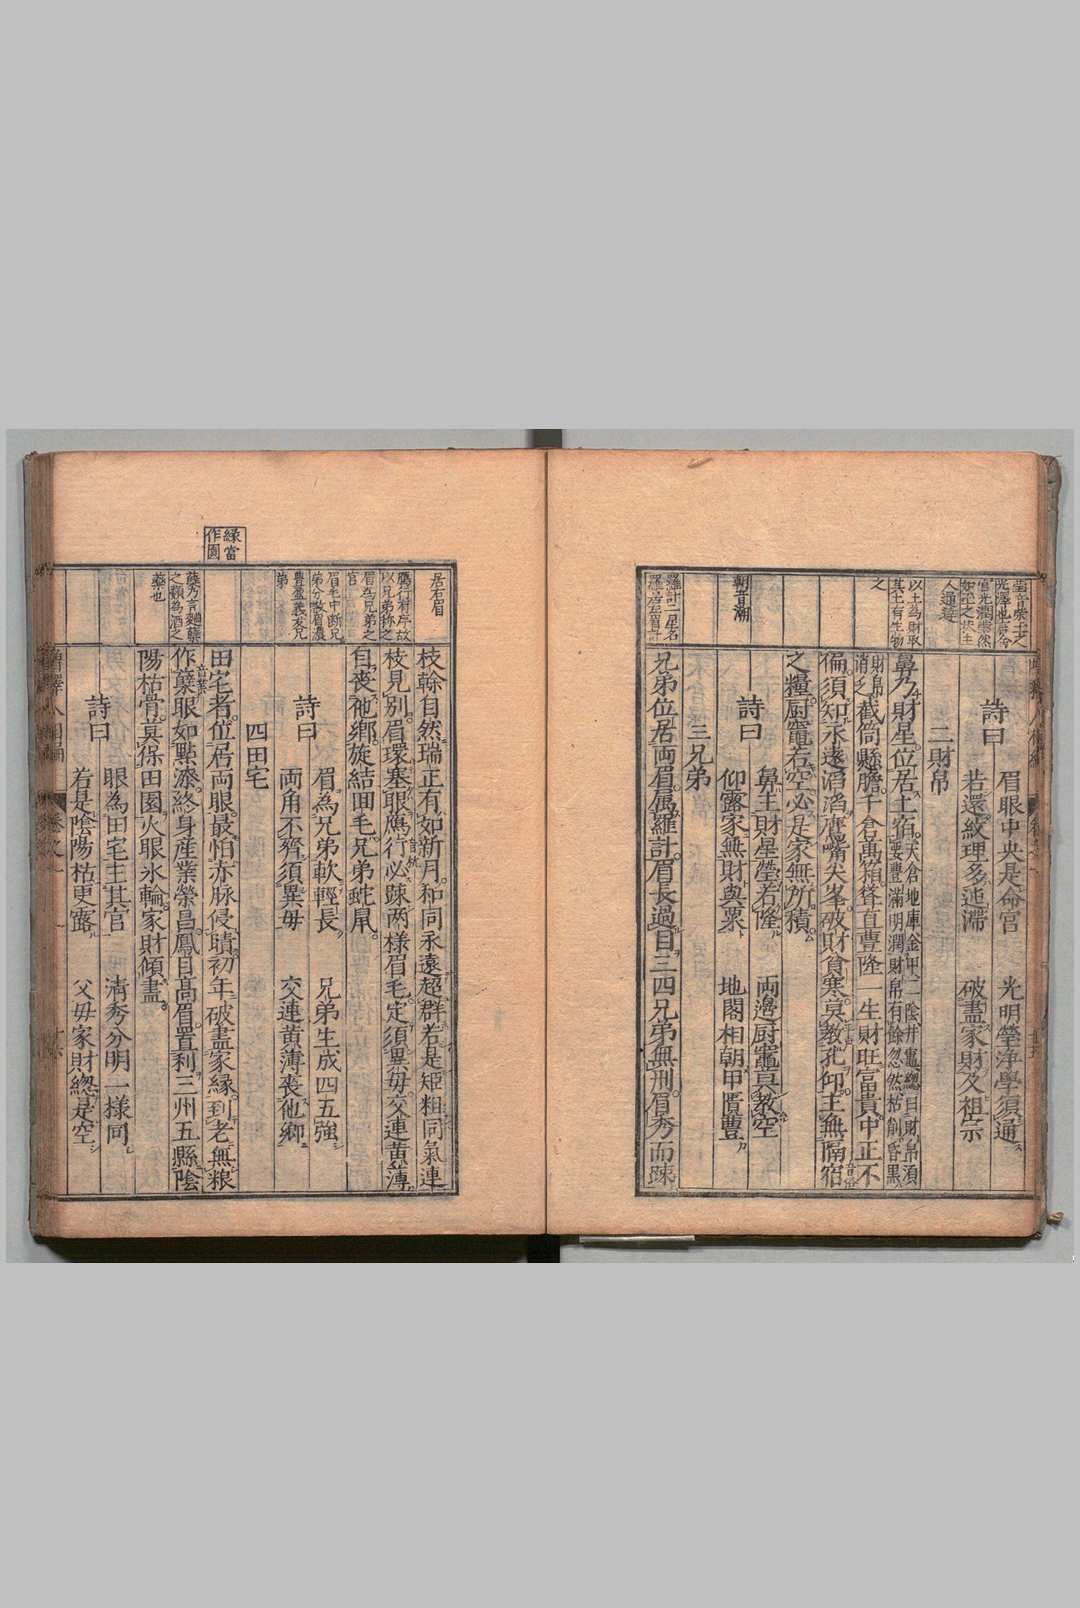 詩曰
眉眼中央是命宮　光明瑩浄學須通
若還紋理多迍滯　破盡家財及祖宗
二財帛
鼻乃財星位居土宿天倉地庫金甲二陰井竈緫曰財帛須要豊滿明潤財帛有餘忽然枯削昏黒
財帛消乏截筒懸膽千倉萬箱聳直豊隆一生財旺富貴中正不
偏須知永遠滔滔鷹嘴尖峯破財貧寒莫教孔仰主無隔宿
之糧厨竈若空必是家無所積
詩曰
鼻主財星瑩若隆　両邊厨竈莫教空
仰露家無財與粟　地閣相朝甲匱豊
三兄弟
兄弟位居両眉属羅計眉長過目三四兄弟無刑眉秀而踈
以土為財取其土有生物之
朝音潮
羅計二星名羅居左眉計
居右眉
枝幹自然瑞正有如新月和同永遠超群若是短粗同氣連
枝見別眉環塞眼鴈行必踈両様眉毛定須異毋交連黄薄
自喪他郷旋結回毛兄弟蛇鼠
詩曰
眉為兄弟軟輕長　兄弟生成四五強
両角不齊須異毋　交連黄薄喪他郷
四田宅
田宅者位居両眼最怕赤脉侵睛初年破盡家縁到老無粮
作糵眼如點漆終身産業榮昌鳳目髙眉置利三州五縣陰
陽枯骨莫保田園火眼氷輪家財傾盡
詩曰
眼為田宅主其官　清秀分明一様同
若是陰陽枯更露　父毋家財緫是空
鴈行有序故以兄弟称之眉為兄弟之官
眉毛中断兄弟分散眉濃豊盈義友兄弟
縁當作園
糵芳言麹糵之類為酒之糵也